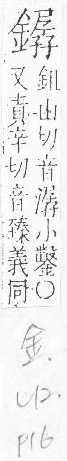 鉏山切音潺小鑿○
又責辛切音臻義同
金.
U12.
P16